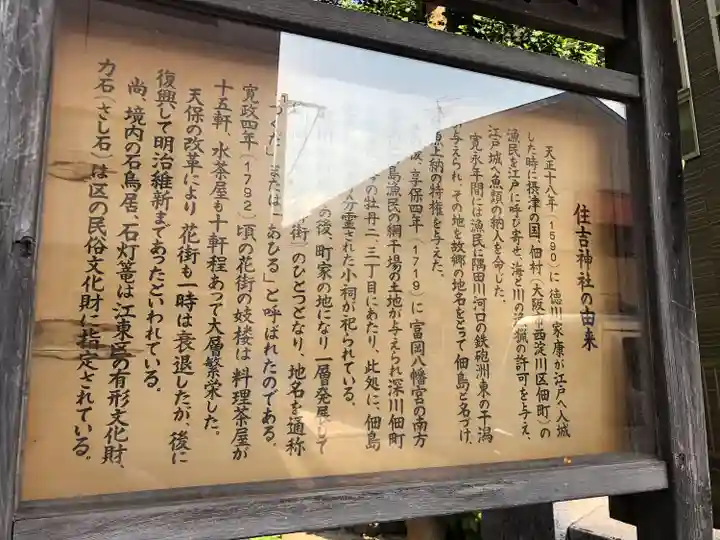 住吉神社の由来
天正十八年(1590)に徳川家康が江戸へ入城
した時に摂津の国、佃村(大阪市西淀川区佃町)の
漁民を江戸に呼び寄せ、海と川の漁猟の許可を与え、
江戸城へ魚類の納入を命じた。
寛永年間には漁民に隅田川河口の鉄砲洲東の干潟
が与えられ、その地を故郷の地名をとって佃島と名づけ、
上納の特権を与えた。
享保四年(1719)に富岡八幡宮の南方
島漁民の網干場の土地が与えられ深川佃町
の牡丹二、三丁目にあたり、此処に、佃島
分霊された小祠が祀られている。
の後、町家の地になり一層発展して
街)のひとつとなり、地名を通称
「つくだ」または「あひる」と呼ばれたのである。
寛政四年(1792)頃の花街の妓楼は料理茶屋が
十五軒、水茶屋も十軒程あって大層繁栄した。
天保の改革により花街も一時は衰退したが、後に
復興して明治維新まであったといわれている。
尚、境内の石鳥居、石灯篭は江東区の有形文化財、
力石(さし石)は区の民俗文化財に指定されている。